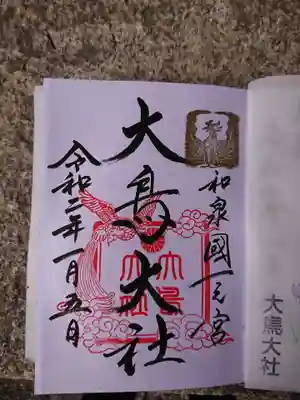 和泉國一之宮
大鳥大社
大鳥
大社
令和二年一月五日
大鳥大社